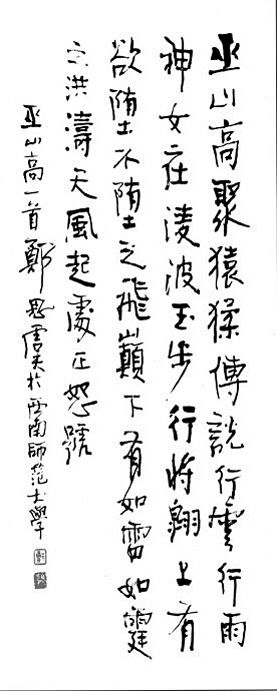 巫山高聚猿猱傳說行雲行雨
神女在淩波玉步行將翱上有
欲墮不墮之飛巔下有如雷如霆
之洪濤天風起處正怒號
巫山高一首鄭思虞夫於雲南師范大學